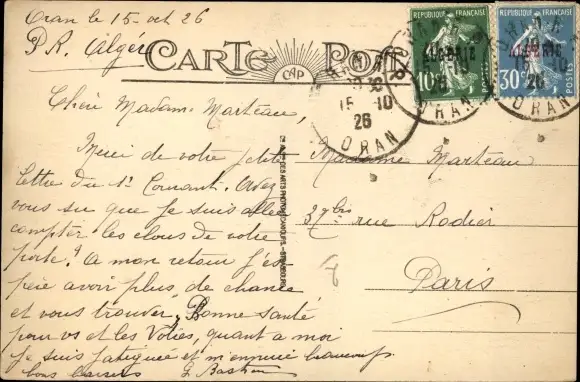 Oran le 15-oct 26
P.R. Algérie
CARTE POSTALE
CAP
REPUBLIQUE FRANÇAISE
ALGÉRIE
10
POSTES
REPUBLIQUE FRANÇAISE
ALGÉRIE
30
POSTES
15-10
26
ORAN
Chère Madame Marteau,
Merci de votre petite
lettre du 1er Courant. Avez
vous su que je suis allée
compter les clous de votre
porte? A mon retour j'es-
père avoir plus de chance
et vous trouver. Bonne Santé
pour vs et les Vôtres, quant a moi
je suis fatiguée et m'ennuie beaucoup.
bons baisers
Madame Marteau
37 bis rue Rodier
Paris